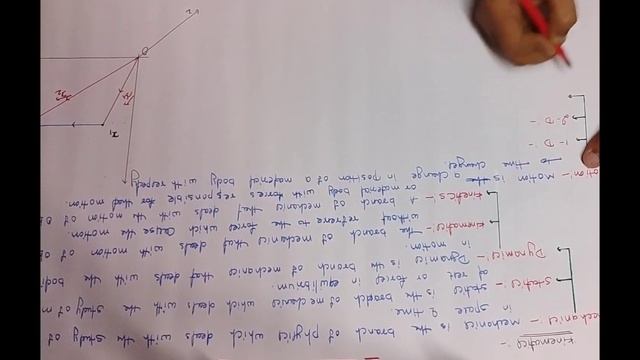 Kinematics :-
echanics :- mechanics is the branch of physics which deals with the study of
in space & time.
Statics :- statics is the branch of mechanics which deals with the study of m
of rest or forces in equilibrium.
Dynamics :- Dynamics is the branch of mechanics that deals with the bodies
in motion.
Kinematics :- The branch of mechanics that deals with motion of ob
without refrence to the force which cause the motion.
Kinetics :- A branch of mechanics that deals with the motion of
or material body with forces responsible for that motion.
otion :- Motion is a change in position of a material body with respect
to time changes.
1-D :-
2-D :-
O
x1